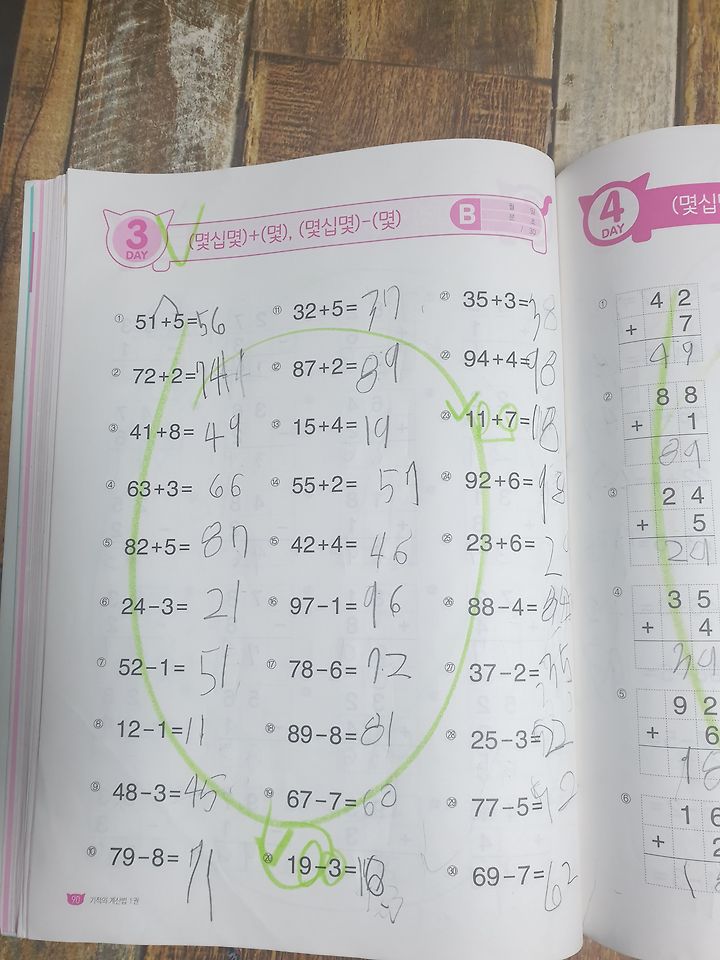 3 DAY
(몇십몇)+(몇), (몇십몇)-(몇)
B
월 일
분 초
/ 30
① 51+5=56
② 72+2=74
③ 41+8=49
④ 63+3=66
⑤ 82+5=87
⑥ 24-3=21
⑦ 52-1=51
⑧ 12-1=11
⑨ 48-3=45
⑩ 79-8=71
⑪ 32+5=37
⑫ 87+2=89
⑬ 15+4=19
⑭ 55+2=57
⑮ 42+4=46
⑯ 97-1=96
⑰ 78-6=72
⑱ 89-8=81
⑲ 67-7=60
⑳ 19-3=
㉑ 35+3=38
㉒ 94+4=98
㉓ 11+7=18
㉔ 92+6=98
㉕ 23+6=2
㉖ 88-4=84
㉗ 37-2=35
㉘ 25-3=22
㉙ 77-5=72
㉚ 69-7=62
90 기적의 계산법 1권
4 DAY
(몇십
① 42
+ 7
49
② 88
+ 1
89
③ 24
+ 5
29
④ 35
+ 4
39
⑤ 92
+ 6
98
⑥ 16
+ 2
1